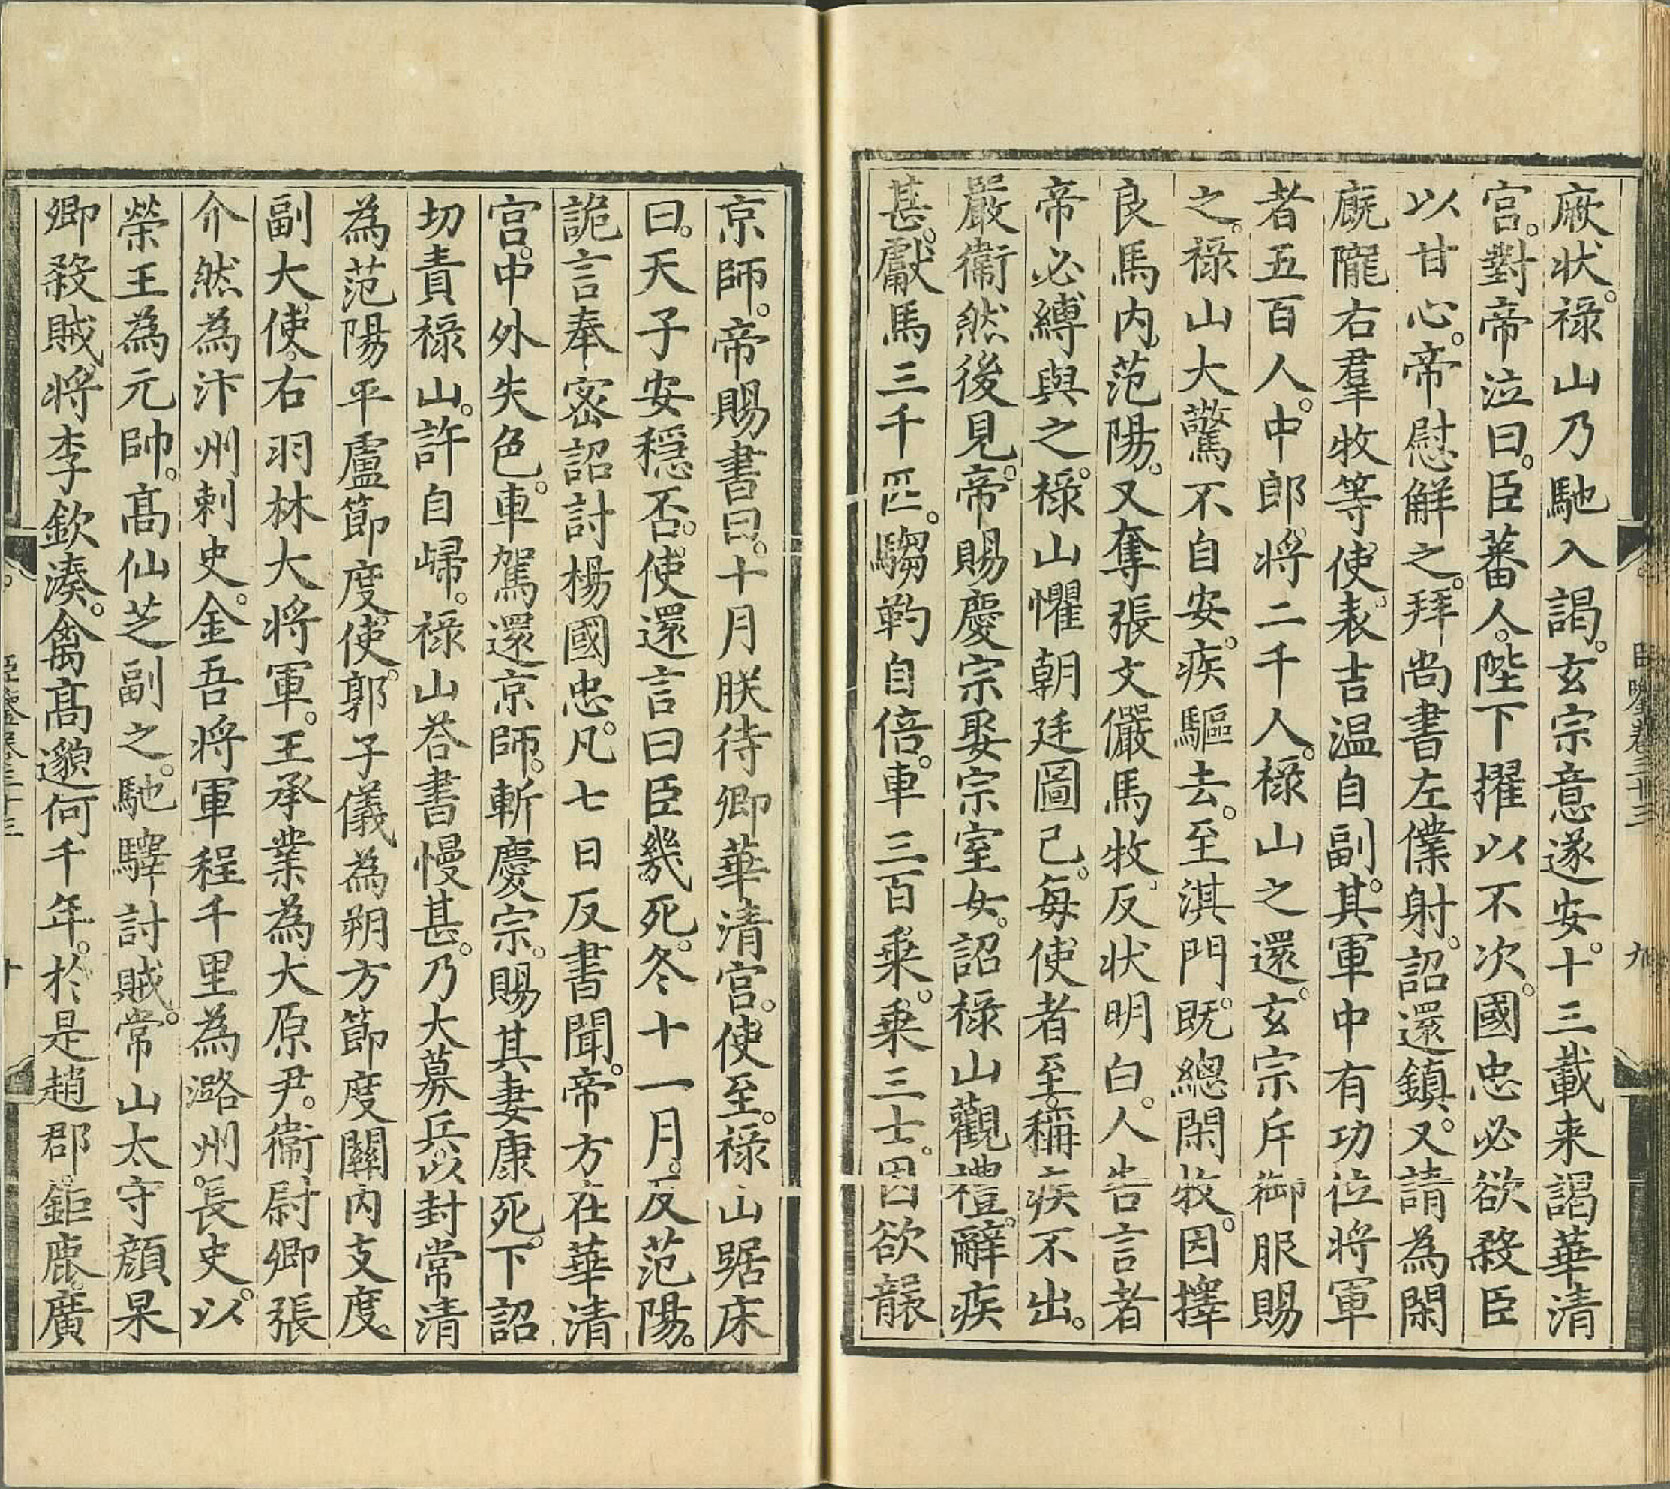 厥状。祿山乃馳入謁。玄宗意遂安。十三載来謁華清
宫。對帝泣曰。臣蕃人。陛下擢以不次。國忠必欲殺臣
以甘心。帝慰解之。拜尚書左僕射。詔還鎮。又請為閑
廐隴右羣牧等使。表吉温自副。其軍中有功位將軍
者五百人。中郎將二千人。祿山之還。玄宗斥御服賜
之。祿山大驚不自安。疾驅去。至淇門。既總閑牧。因擇
良馬内范陽。又奪張文儼馬牧。反状明白。人告言者
帝必縛與之。祿山懼朝廷圖己。每使者至。稱疾不出。
嚴衞然後見。帝賜慶宗娶宗室女。詔祿山觀禮。辭疾
甚。獻馬三千匹。騶靮自倍。車三百乘。乘三士。因欲襲
京師。帝賜書曰。十月朕待卿華清宫。使至。祿山踞床
曰。天子安穩否。使還言曰臣幾死。冬十一月。反范陽。
詭言奉密詔討楊國忠。凡七日反書聞。帝方在華清
宫。中外失色。車駕還京師。斬慶宗。賜其妻康死。下詔
切責祿山。許自歸。祿山荅書慢甚。乃大募兵。以封常清
為范陽平盧節度使。郭子儀為朔方節度關内支度
副大使。右羽林大將軍。王承業為大原尹。衞尉卿張
介然為汴州刺史。金吾將軍程千里為潞州。長史。以
榮王為元帥。高仙芝副之。馳驛討賊。常山太守顔杲
卿殺賊將李欽湊。禽高邈何千年。於是趙郡。鉅鹿。廣
臣鑒卷三十三
九
十